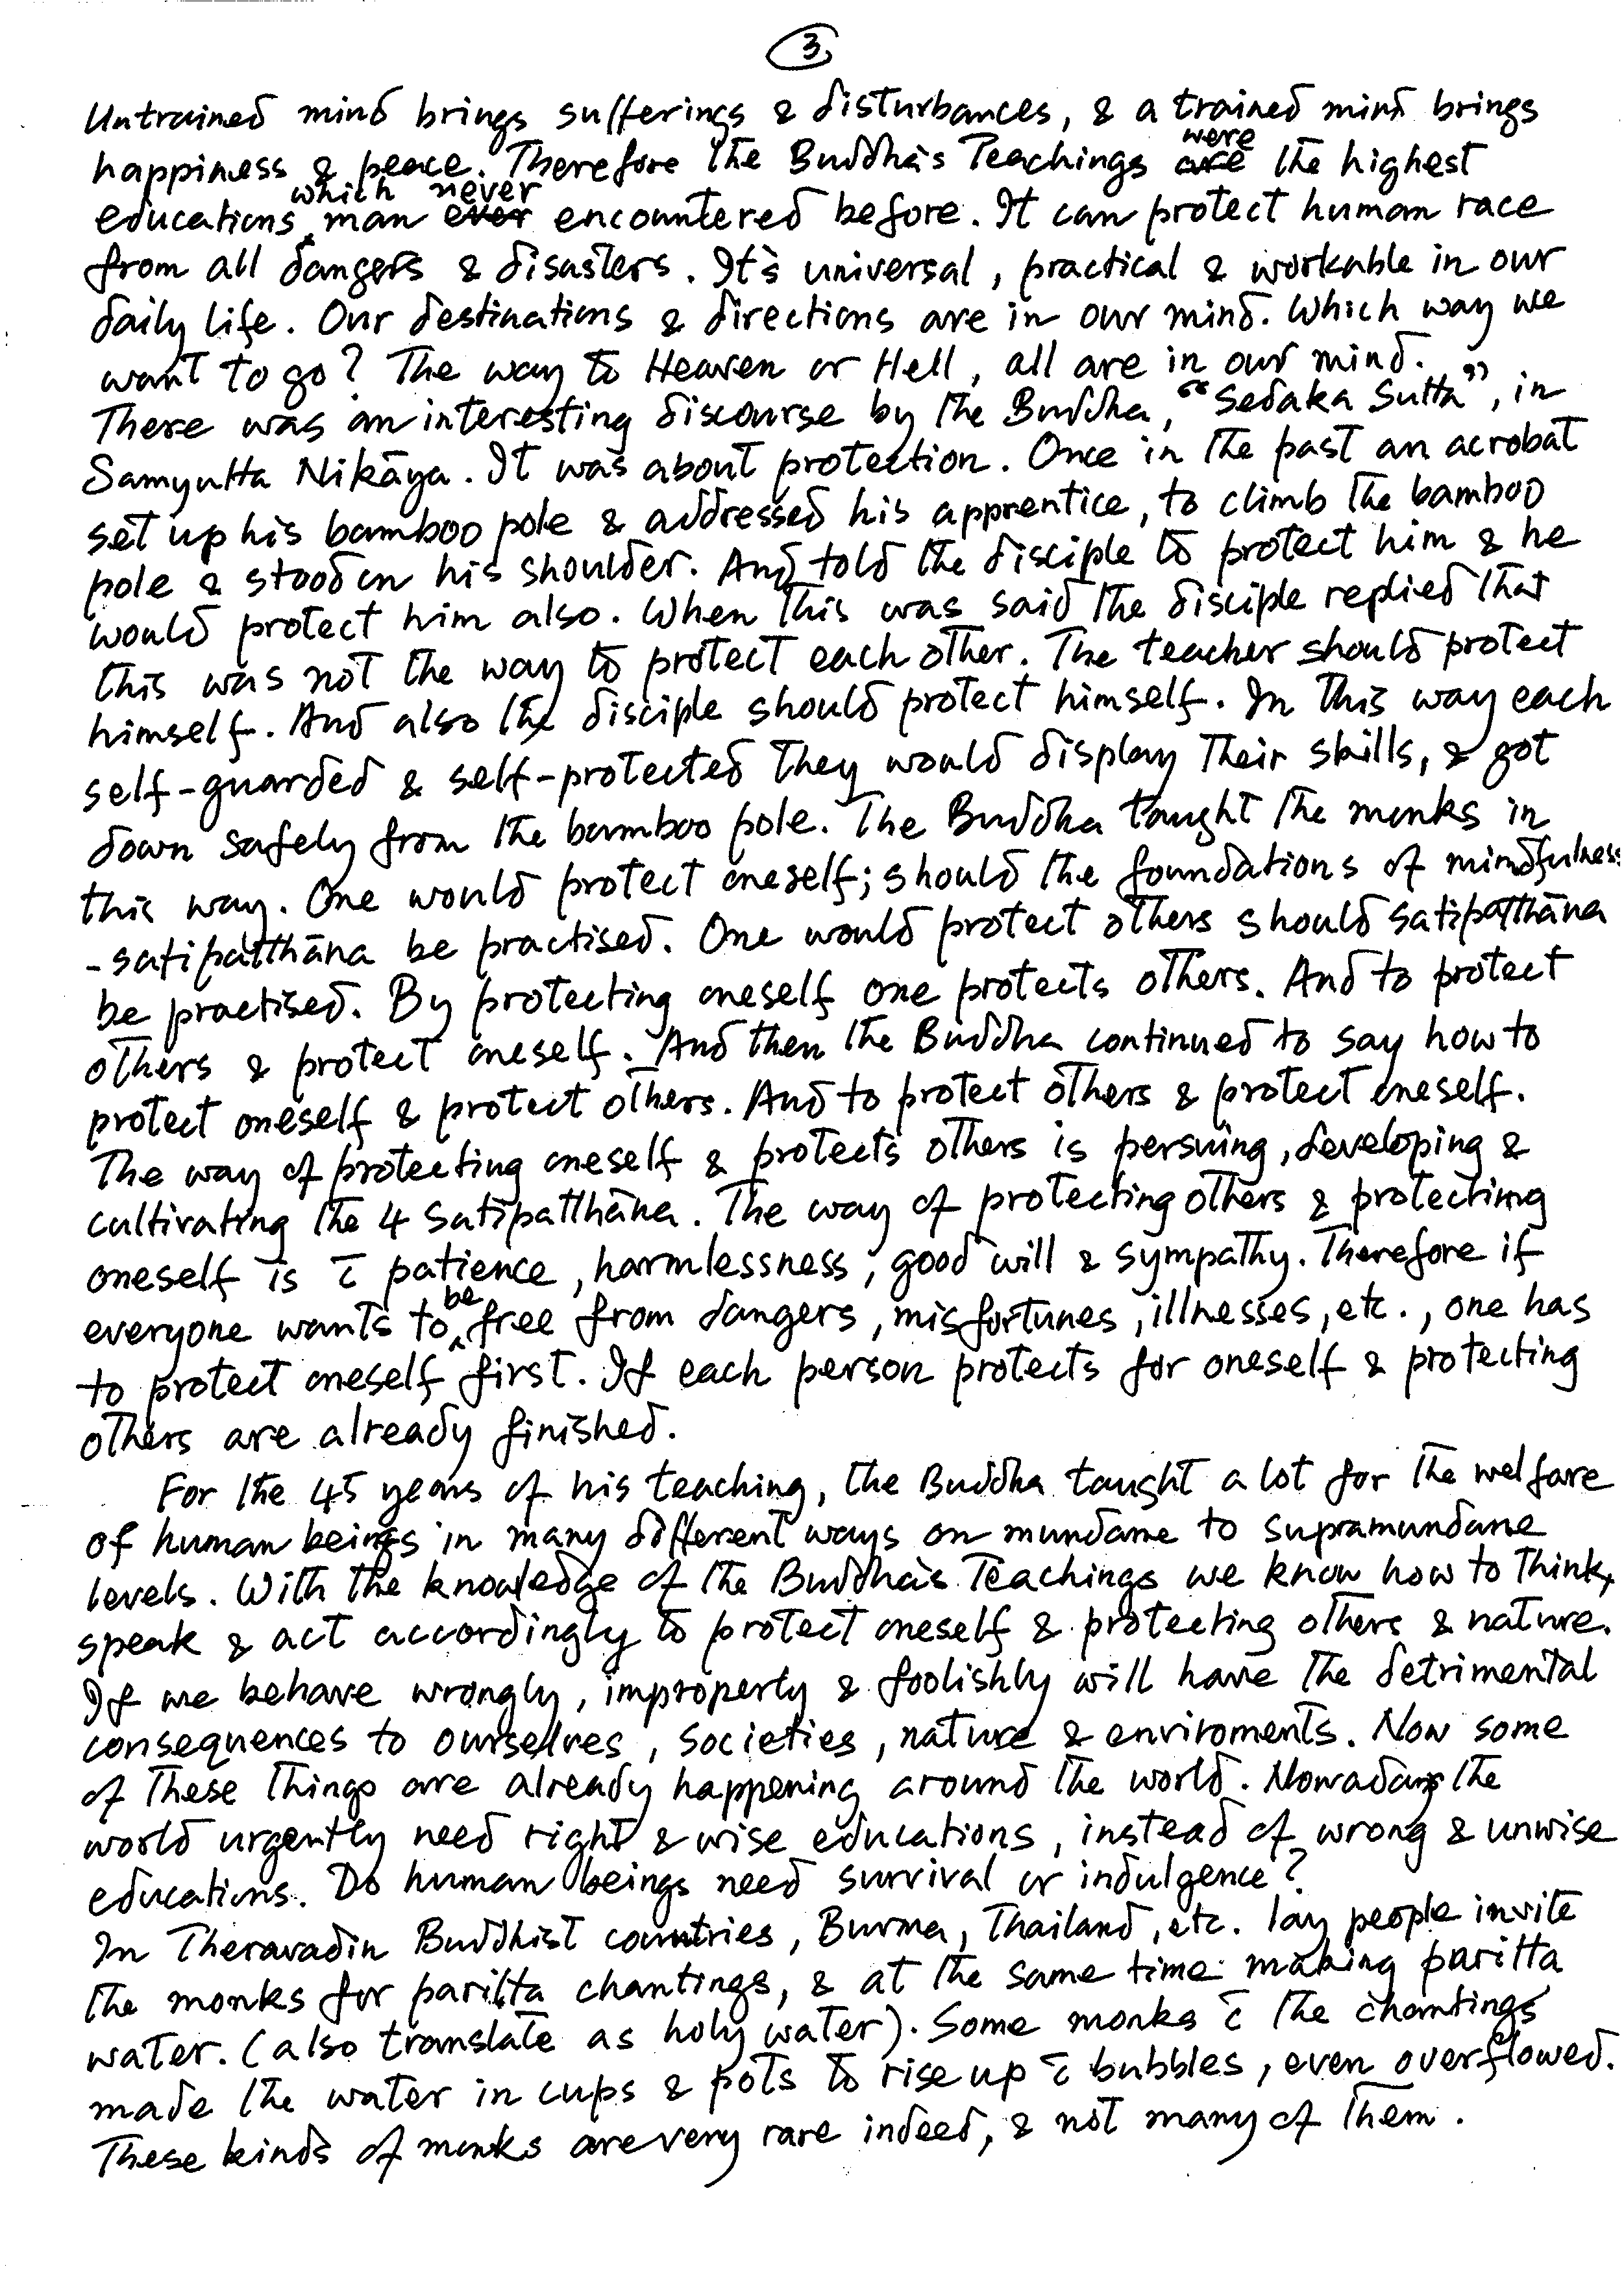 3.
Untrained mind brings sufferings & disturbances, & a trained mind brings
happiness & peace. Therefore the Buddha's Teachings were the highest
educations which man never encountered before. It can protect human race
from all dangers & disasters. It's universal, practical & workable in our
daily life. Our destinations & directions are in our mind. Which way we
want to go? The way to Heaven or Hell, all are in our mind.
There was an interesting discourse by the Buddha, "Sedaka Sutta", in
Samyutta Nikāya. It was about protection. Once in the past an acrobat
set up his bamboo pole & addressed his apprentice, to climb the bamboo
pole & stood on his shoulder. And told the disciple to protect him & he
would protect him also. When this was said the disciple replied that
this was not the way to protect each other. The teacher should protect
himself. And also the disciple should protect himself. In this way each
self-guarded & self-protected they would display their skills, & got
down safely from the bamboo pole. The Buddha taught the monks in
this way. One would protect oneself; should the foundations of mindfulness
- satipatthāna be practised. One would protect others should satipatthāna
be practised. By protecting oneself one protects others. And to protect
others & protect oneself. And then the Buddha continued to say how to
protect oneself & protect others. And to protect others & protect oneself.
The way of protecting oneself & protects others is persuing, developing &
cultivating the 4 satipatthāna. The way of protecting others & protecting
oneself is c̄ patience, harmlessness, good will & sympathy. Therefore if
everyone wants to be free from dangers, misfortunes, illnesses, etc., one has
to protect oneself first. If each person protects for oneself & protecting
others are already finished.
For the 45 years of his teaching, the Buddha taught a lot for the welfare
of human beings in many different ways on mundane to supramundane
levels. With the knowledge of the Buddha's Teachings we know how to think,
speak & act accordingly to protect oneself & protecting others & nature.
If we behave wrongly, improperly & foolishly will have the detrimental
consequences to ourselves, societies, nature & enviroments. Now some
of these things are already happening around the world. Nowadays the
world urgently need right & wise educations, instead of wrong & unwise
educations. Do human beings need survival or indulgence?
In Theravadin Buddhist countries, Burma, Thailand, etc. lay people invite
the monks for paritta chantings, & at the same time making paritta
water. (also translate as holy water). Some monks c̄ the chantings
made the water in cups & pots to rise up c̄ bubbles, even overflowed.
These kinds of monks are very rare indeed, & not many of them.